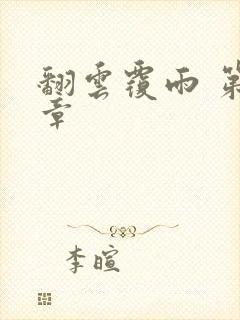 翻雲覆雨 第
章
李暄